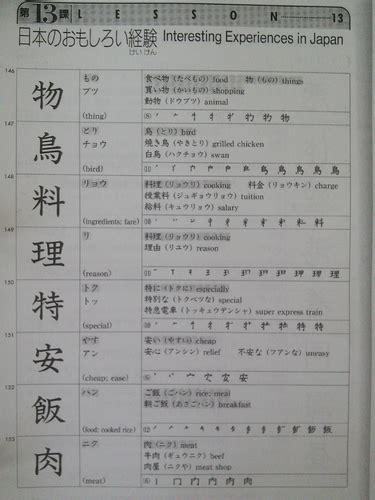 第13課 LESSON 13
日本のおもしろい経験 Interesting Experiences in Japan
けいけん
146
物
もの
ブツ
(thing)
食べ物(たべもの) food 物(もの) things
買い物(かいもの) shopping
動物(ドウブツ) animal
(8)
147
鳥
とり
チョウ
(bird)
鳥(とり) bird
焼き鳥(やきとり) grilled chicken
白鳥(ハクチョウ) swan
(11)
148
料
リョウ
(ingredients; fare)
料理(リョウリ) cooking 料金(リョウキン) charge
授業料(ジュギョウリョウ) tuition
給料(キュウリョウ) salary
(10)
149
理
リ
(reason)
料理(リョウリ) cooking
理由(リユウ) reason
(11)
150
特
トク
トッ
(special)
特に(トクに) especially
特別な(トクベツな) special
特急電車(トッキュウデンシャ) super express train
(10)
151
安
やす
アン
(cheap; ease)
安い(やすい) cheap
安心(アンシン) relief 不安な(フアンな) uneasy
(6)
152
飯
ハン
(food; cooked rice)
ご飯(ごハン) rice; meal
朝ご飯(あさごハン) breakfast
(12)
153
肉
ニク
(meat)
肉(ニク) meat
牛肉(ギュウニク) beef
肉屋(ニクや) meat shop
(6)